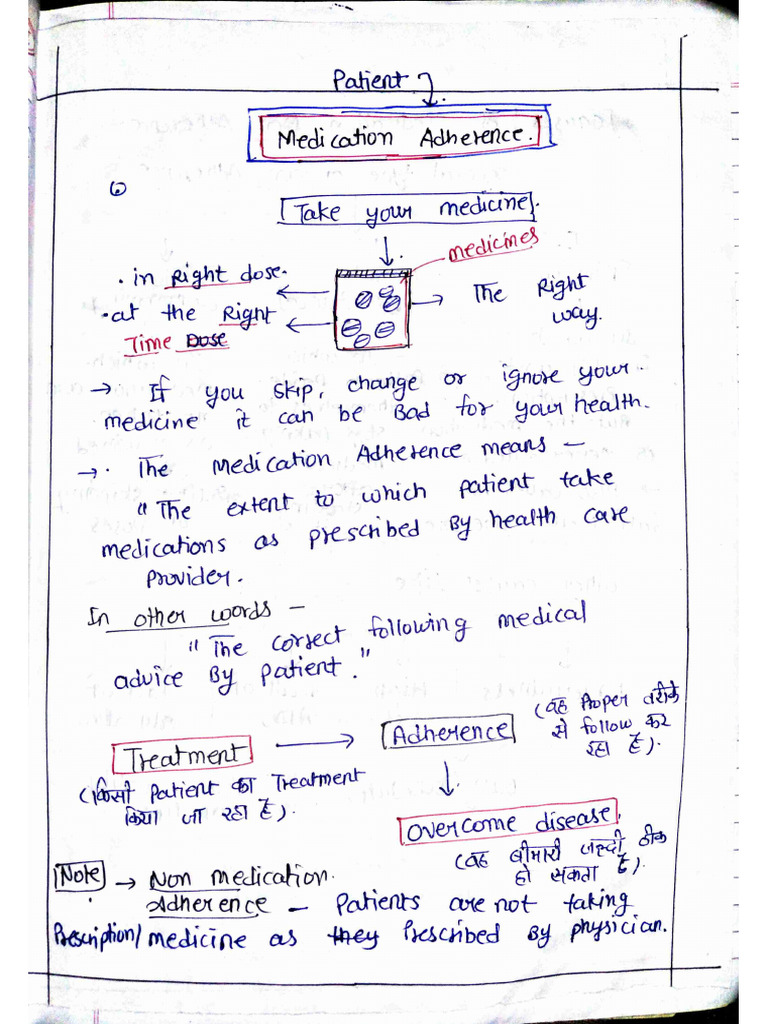 Patient
Medication Adherence.
Take your medicine.
medicines
. in Right dose.
. at the Right
Time Dose
The Right
way.
→ . If you skip, change or ignore your
medicine it can be Bad for your health.
→ . The Medication Adherence means –
" The extent to which patient take
medications as prescribed By health care
Provider.
In other words –
" The correct following medical
advice By Patient."
Treatment → Adherence
(वह Proper तरीके
से follow कर
रहा है).
(किसी Patient का Treatment
किया जा रहा है).
Overcome disease.
(वह बीमारी जल्दी ठीक
हो सकता है).
Note → Non medication.
Adherence – Patients are not taking
Prescription/medicine as they Prescribed By physician.